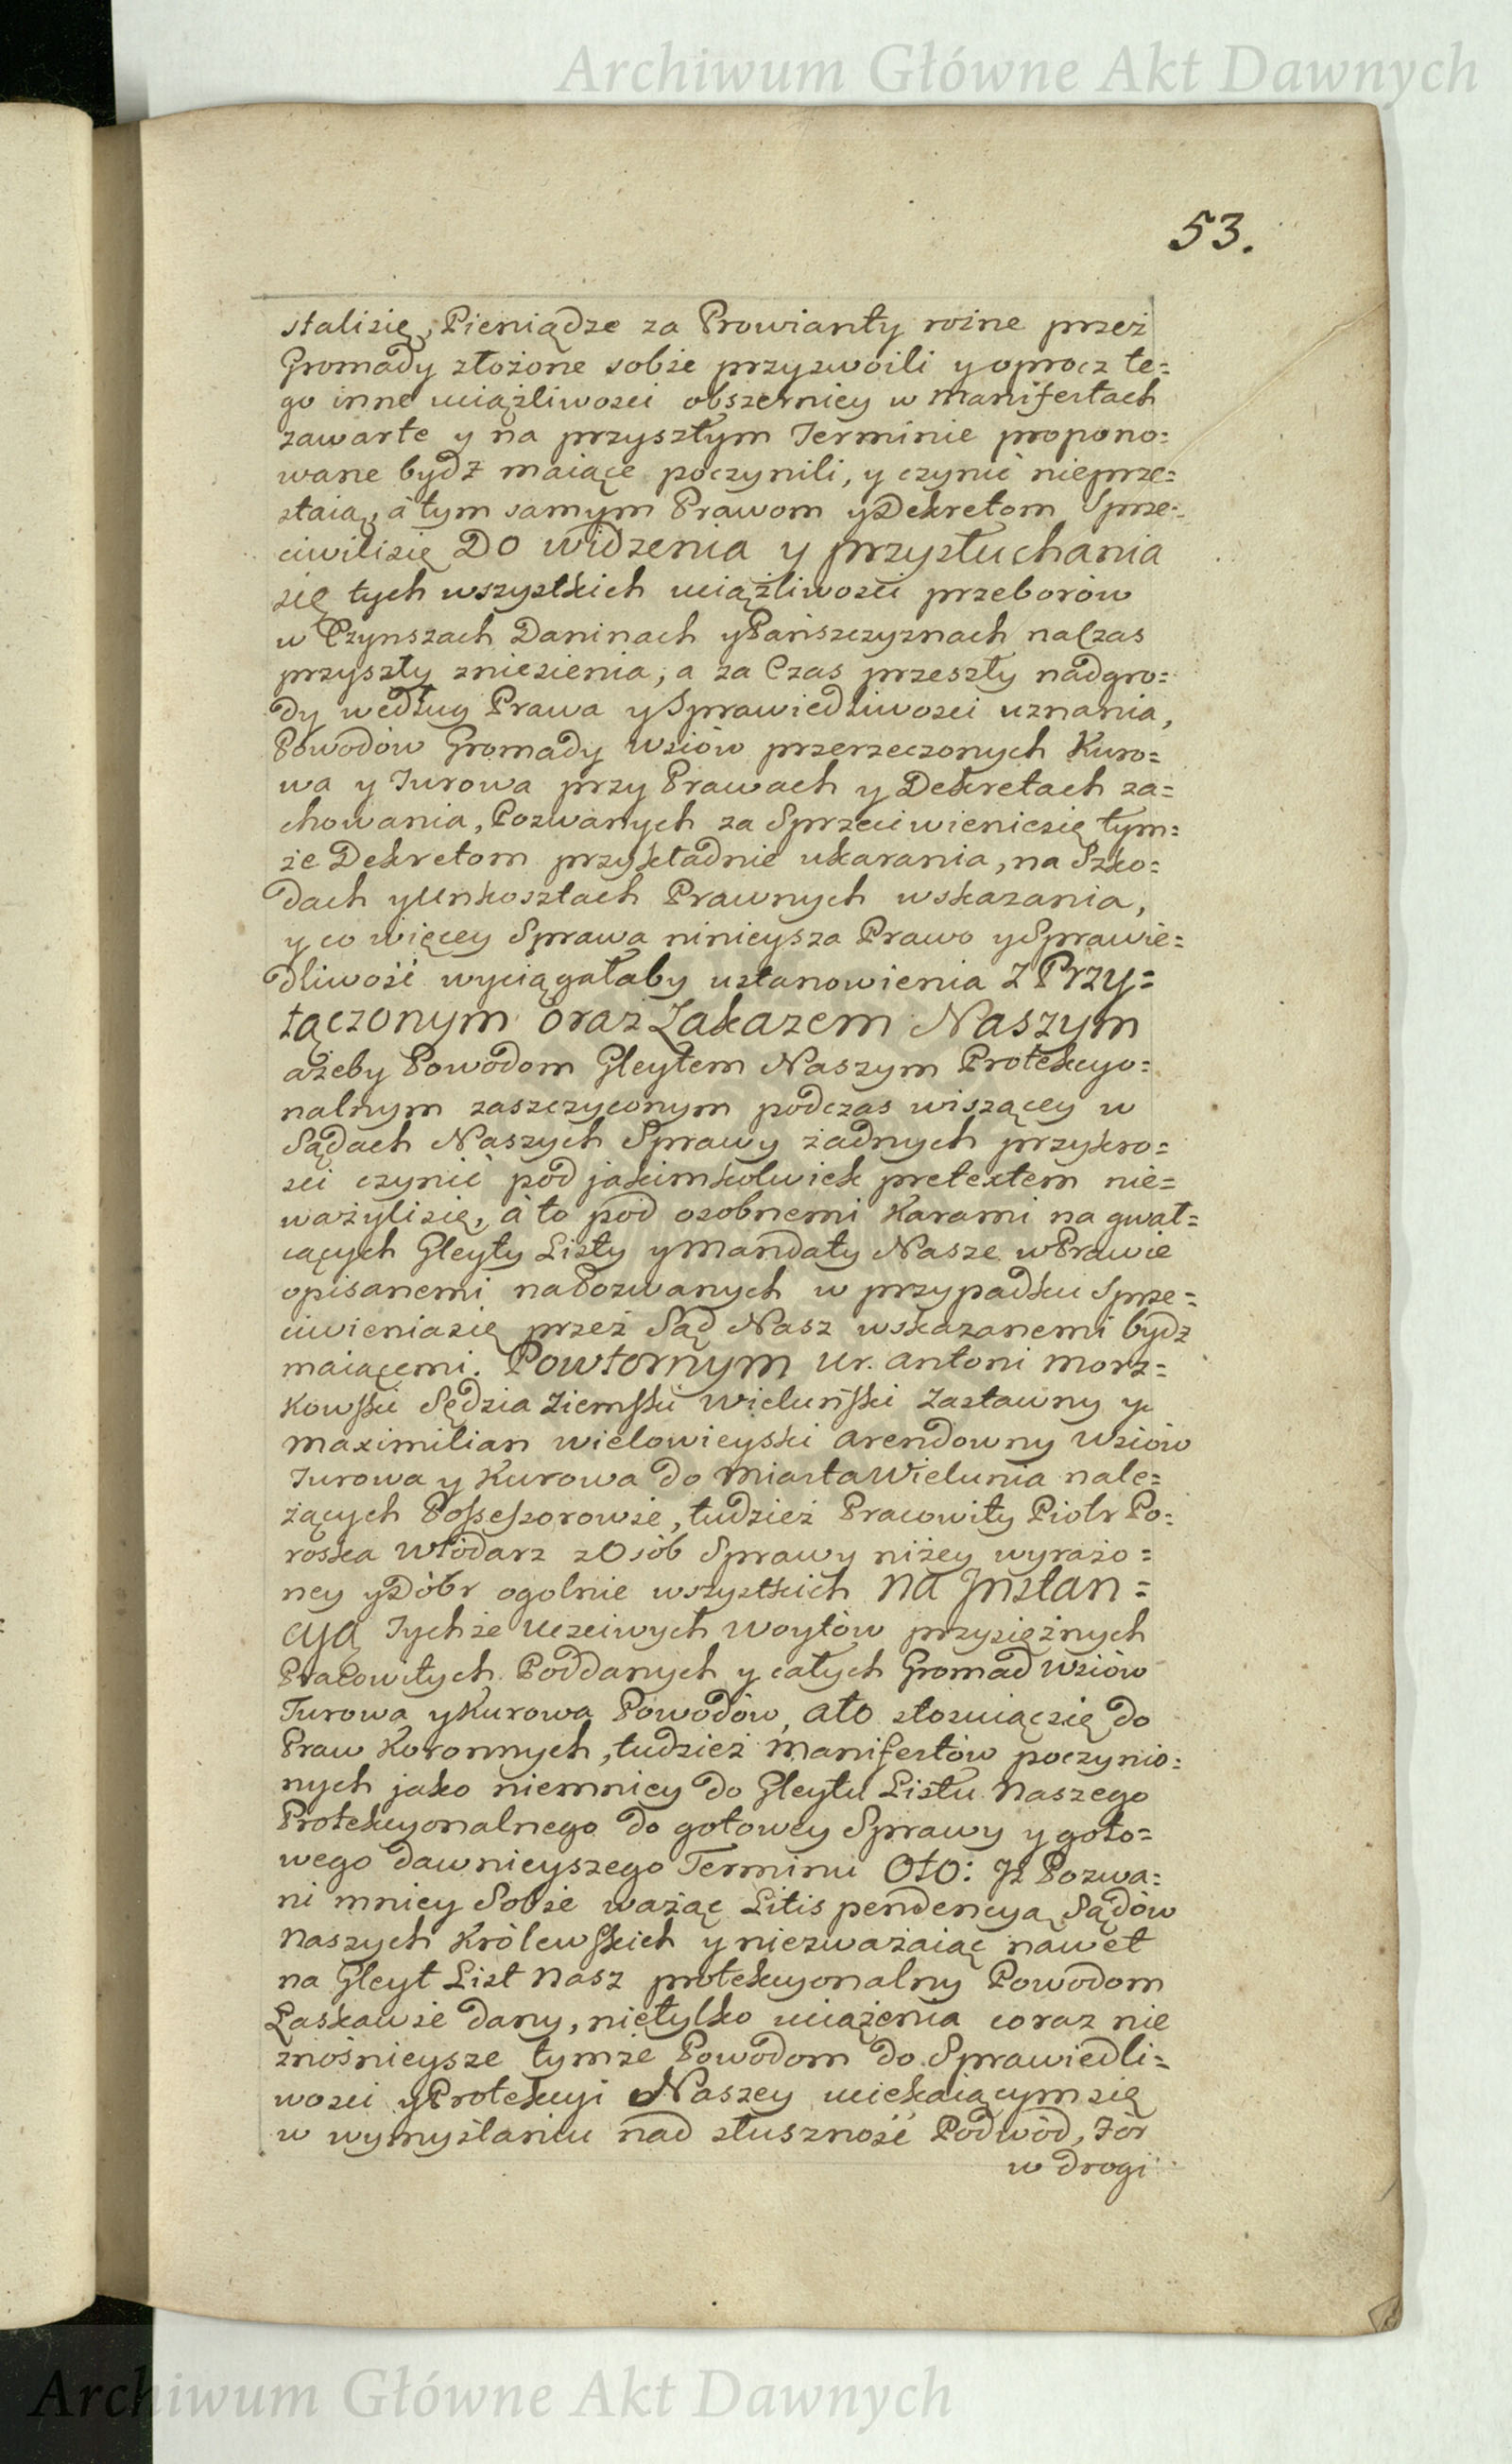 Archiwum Główne Akt Dawnych
53.
stalisię, Pieniądze za Prowianty rożne przez
Gromady złożone sobie przyswoili y oprocz te=
go inne uciążliwosci obszerniey w Manifestach
zawarte y na przyszłym Terminie propono=
wane bydź maiące poczynili, y czynić nieprze=
staią, á tym samym Prawom y Dekretom Sprze=
ciwilisię DO widzenia y przysłuchania
się tych wszystkich uciążliwosci przeborów
w Czynszach Daninach y Pańszczyznach na Czas
przyszły zniesienia, a za Czas przeszły nadgro=
dy według Prawa y Sprawiedliwosci uznania,
Powodów Gromady Wsiów przerzeczonych Kuro=
wa y Turowa przy Prawach y Dekretach za=
chowania, Pozwanych za Sprzeciwieniesię tym=
że Dekretom przykładnie ukarania, na Szko=
dach y Unkosztach Prawnych wskazania,
y co więcey Sprawa ninieysza Prawo y Sprawie=
dliwość wyciągałaby ustanowienia Z Przy=
łączonym oraz Zakazem Naszym
ażeby Powodom Gleytem Naszym Protekcyo=
nalnym zaszczyconym podczas wiszącey w
Sądach Naszych Sprawy żadnych przykro=
sci czynić pod jakimkolwiek pretextem nie=
ważylisię, á to pod osobnemi Karami na gwał=
cących Gleyty Listy y Mandaty Nasze w Prawie
opisanemi na Pozwanych w przypadku Sprze=
ciwieniasię przez Sąd Nasz wskazanemi bydz
maiącemi. Powtornym Ur. Antoni Morz=
kowski Sędzia Ziemski Wieluński Zastawny y
Maximilian Wielowieyski Arendowny Wsiów
Turowa y Kurowa do Miasta Wielunia nale=
żących Possessorowie, tudzież Pracowity Piotr Po=
roska Włodarz z Osób Sprawy niżey wyrażo=
ney y Dóbr ogolnie wszystkich na Jnstan=
cyą Tychże Uczciwych Woytów przysiężnych
Pracowitych Poddanych y całych Gromad Wsiów
Turowa y Kurowa Powodów, ato stosuiącsię do
Praw Koronnych, tudzież Manifestów poczynio=
nych jako niemniey do Gleytu Listu Naszego
Protekcyonalnego do gotowey Sprawy y goto=
wego dawnieyszego Terminu Oto: Jż Pozwa=
ni mniey Sobie ważąc Litis pendencyą Sądów
Naszych Królewskich y niezważaiąc nawet
na Gleyt List Nasz protekcyonalny Powodom
Łaskawie dany, nietylko uciążenia coraz nie
znośnieysze tymże Powodom do Sprawiedli=
wosci y Protekcyi Naszey uciekaiącymsię
w wymyślaniu nad słuszność Podwód, Fór
w drogi
Archiwum Główne Akt Dawnych